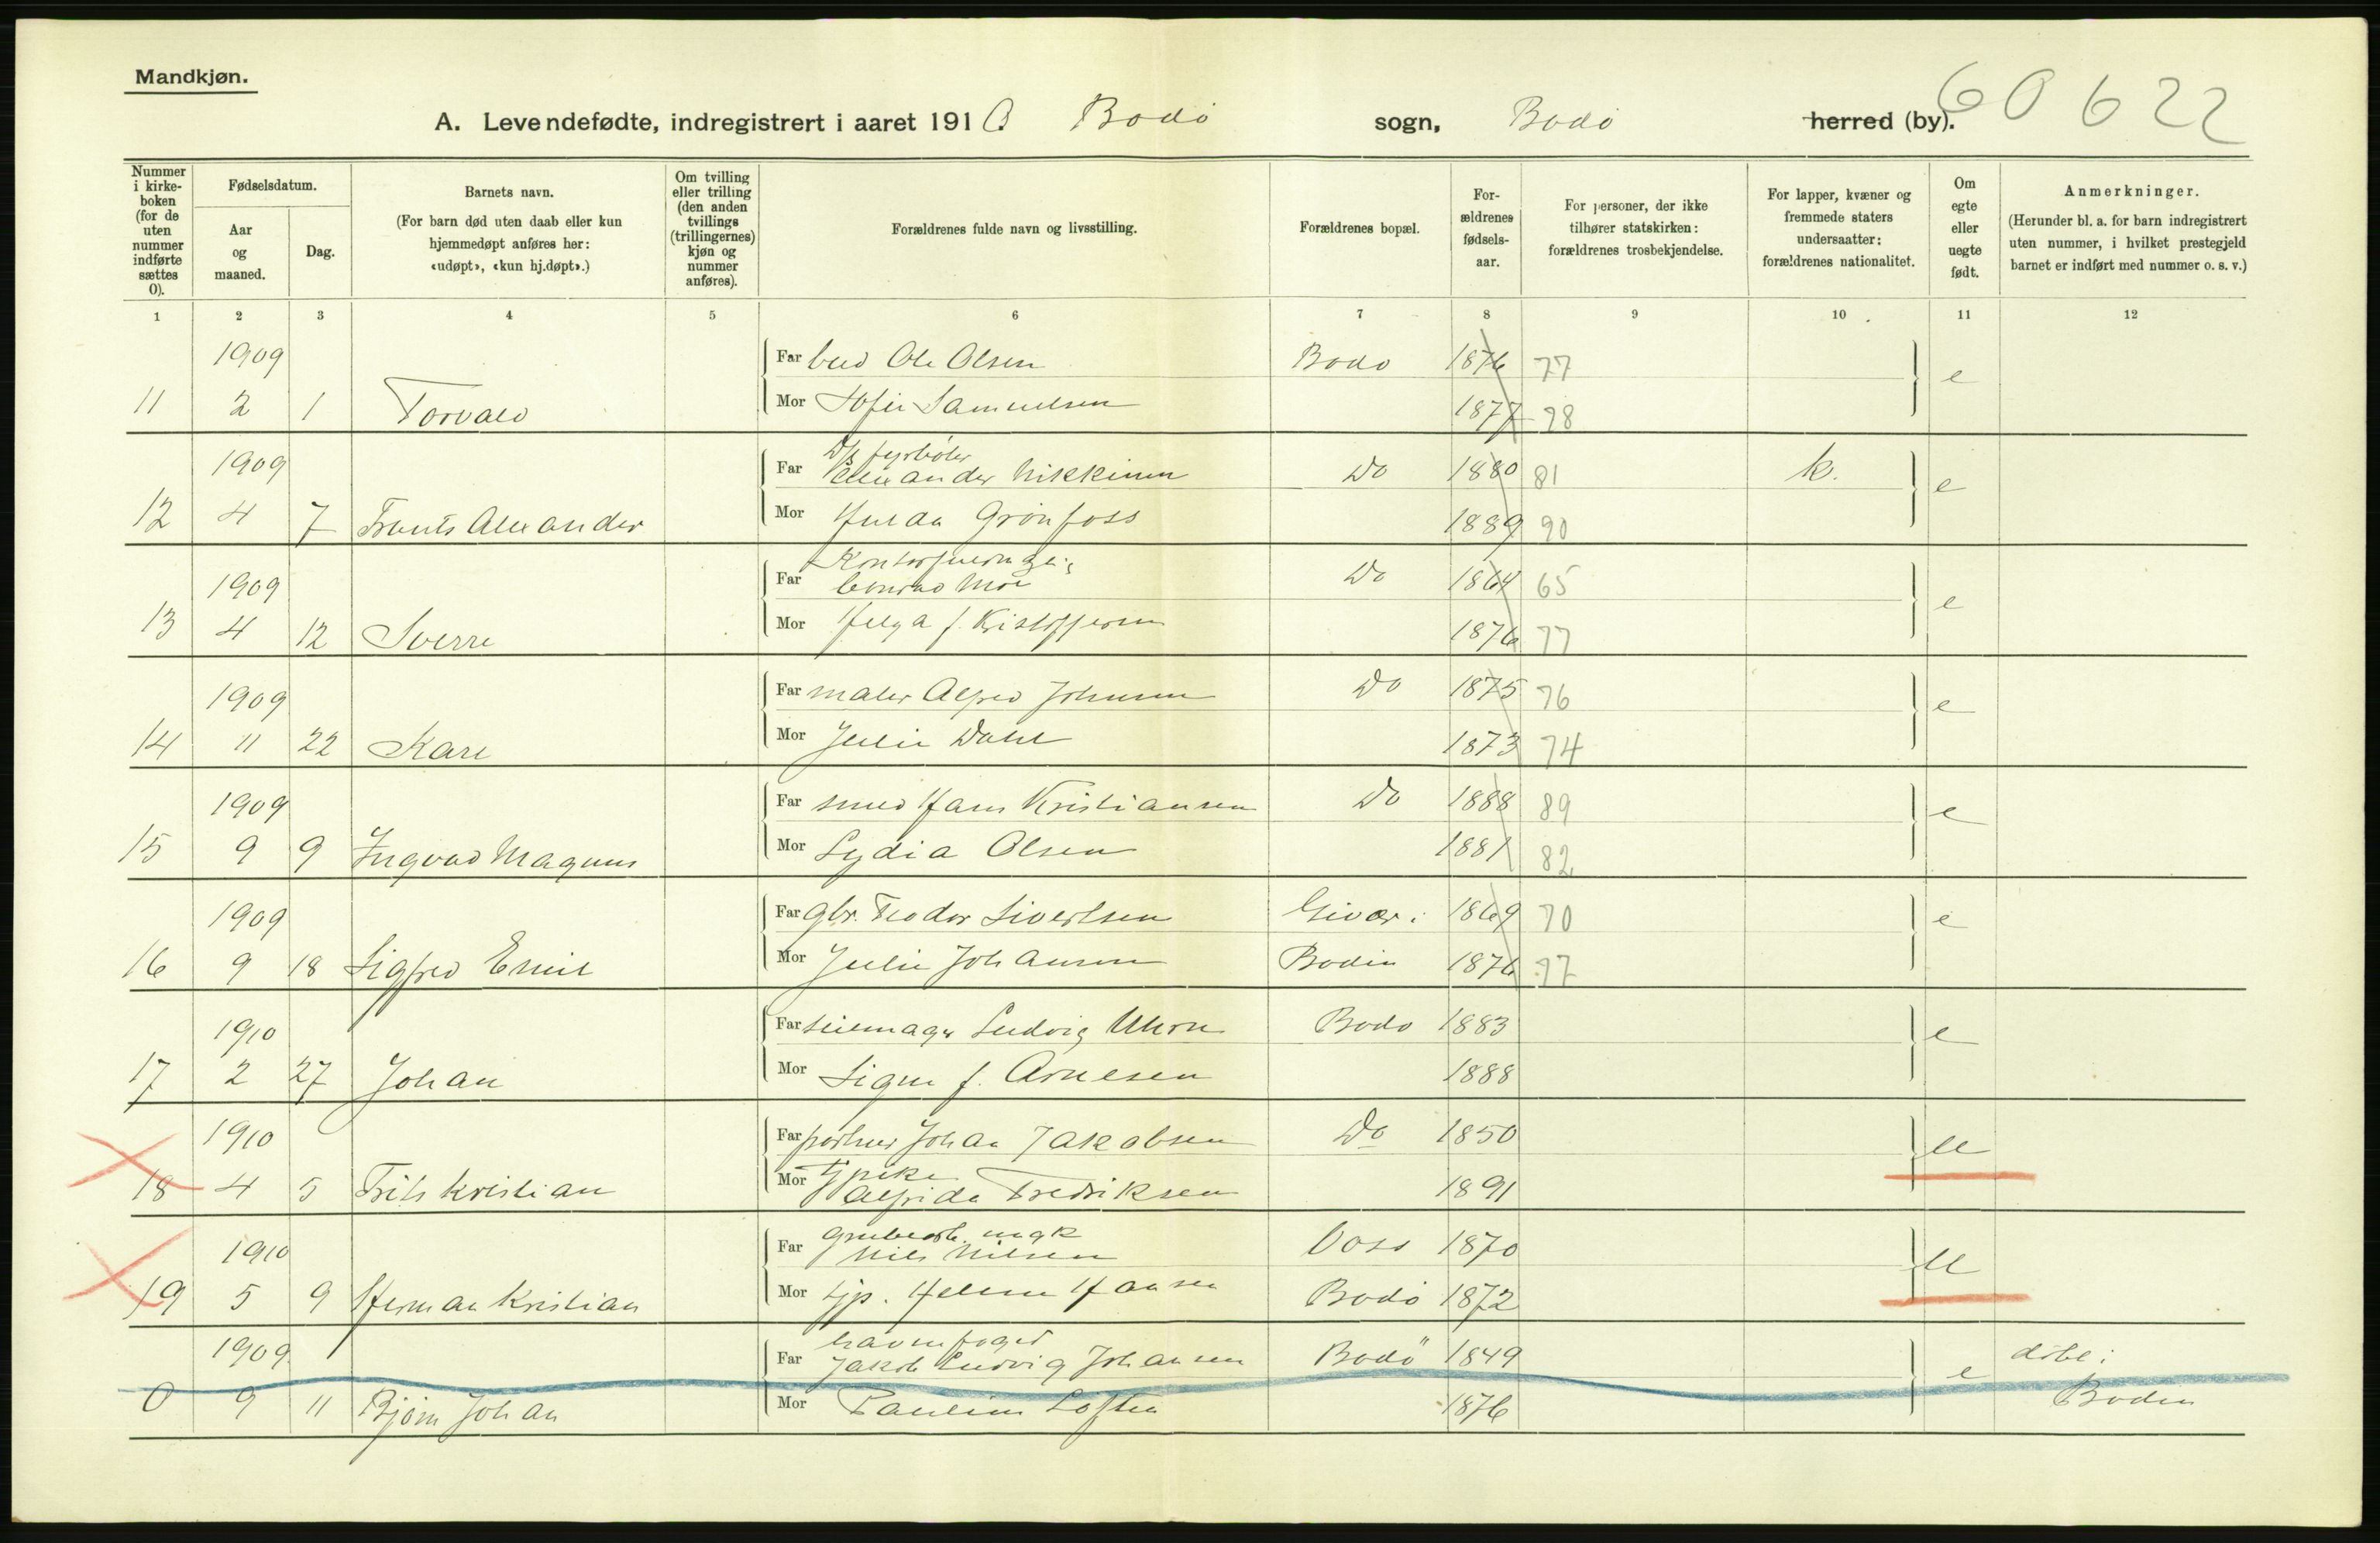 Mandkjøn.
A. Levendefødte, indregistrert i aaret 1910 Bodø sogn, Bodø herred (by). 60 622
Nummer i kirkeboken (for de uten nummer indførte sættes 0).
Fødselsdatum.
Aar og maaned.
Dag.
Barnets navn.
(For barn død uten daab eller kun hjemmedøpt anføres her: «udøpt», «kun hj.døpt».)
Om tvilling eller trilling (den anden tvillings (trillingernes) kjøn og nummer anføres).
Forældrenes fulde navn og livsstilling.
Forældrenes bopæl.
Forældrenes fødselsaar.
For personer, der ikke tilhører statskirken: forældrenes trosbekjendelse.
For lapper, kvæner og fremmede staters undersaatter: forældrenes nationalitet.
Om egte eller uegte født.
Anmerkninger.
(Herunder bl. a. for barn indregistrert uten nummer, i hvilket prestegjeld barnet er indført med nummer o. s. v.)
1 2 3 4 5 6 7 8 9 10 11 12
1909 Far bud Ole Olsen Bodø 1876 77 e
11 2 1 Torvald Mor Sofie Samuelsen 1877 78
1909 Far D/s fyrbøter Alexander Nikkinen Do 1880 81 k. e
12 4 7 Frants Alexander Mor Hulda Grönfoss 1889 90
1909 Far Conrad Moe Do 1864 65 e
13 4 12 Sverre Mor Helga f. Kristoffersen 1876 77
1909 Far maler Alfred Johnsen Do 1875 76 e
14 11 22 Kare Mor Julie Dahl 1873 74
1909 Far smed Hans Kristiansen Do 1888 89 e
15 9 9 Ingvad Magnus Mor Lydia Olsen 1881 82
1909 Far gbr. Teodor Sivertsen Givær i 1869 70 e
16 9 18 Sigfred Emil Mor Julie Johansen Bodin 1876 77
1910 Far Ludvig Bodø 1883 e
17 2 27 Johan Mor Signe f. Arnesen 1888
1910 Far portner Johan Jakobsen Do 1850 u
18 4 5 Frits Kristian Mor tj pike Alfrida Fredriksen 1891
1910 Far grubearb. ungk Nils Nilsen Voss 1870 u
19 5 9 Herman Kristian Mor tjp. Helene Hansen Bodø 1872
1909 Far havnefoged Jakob Ludvig Johansen Bodø 1849 e døbt i
0 9 11 Bjørn Johan Mor Pauline Loften 1876 Bodin